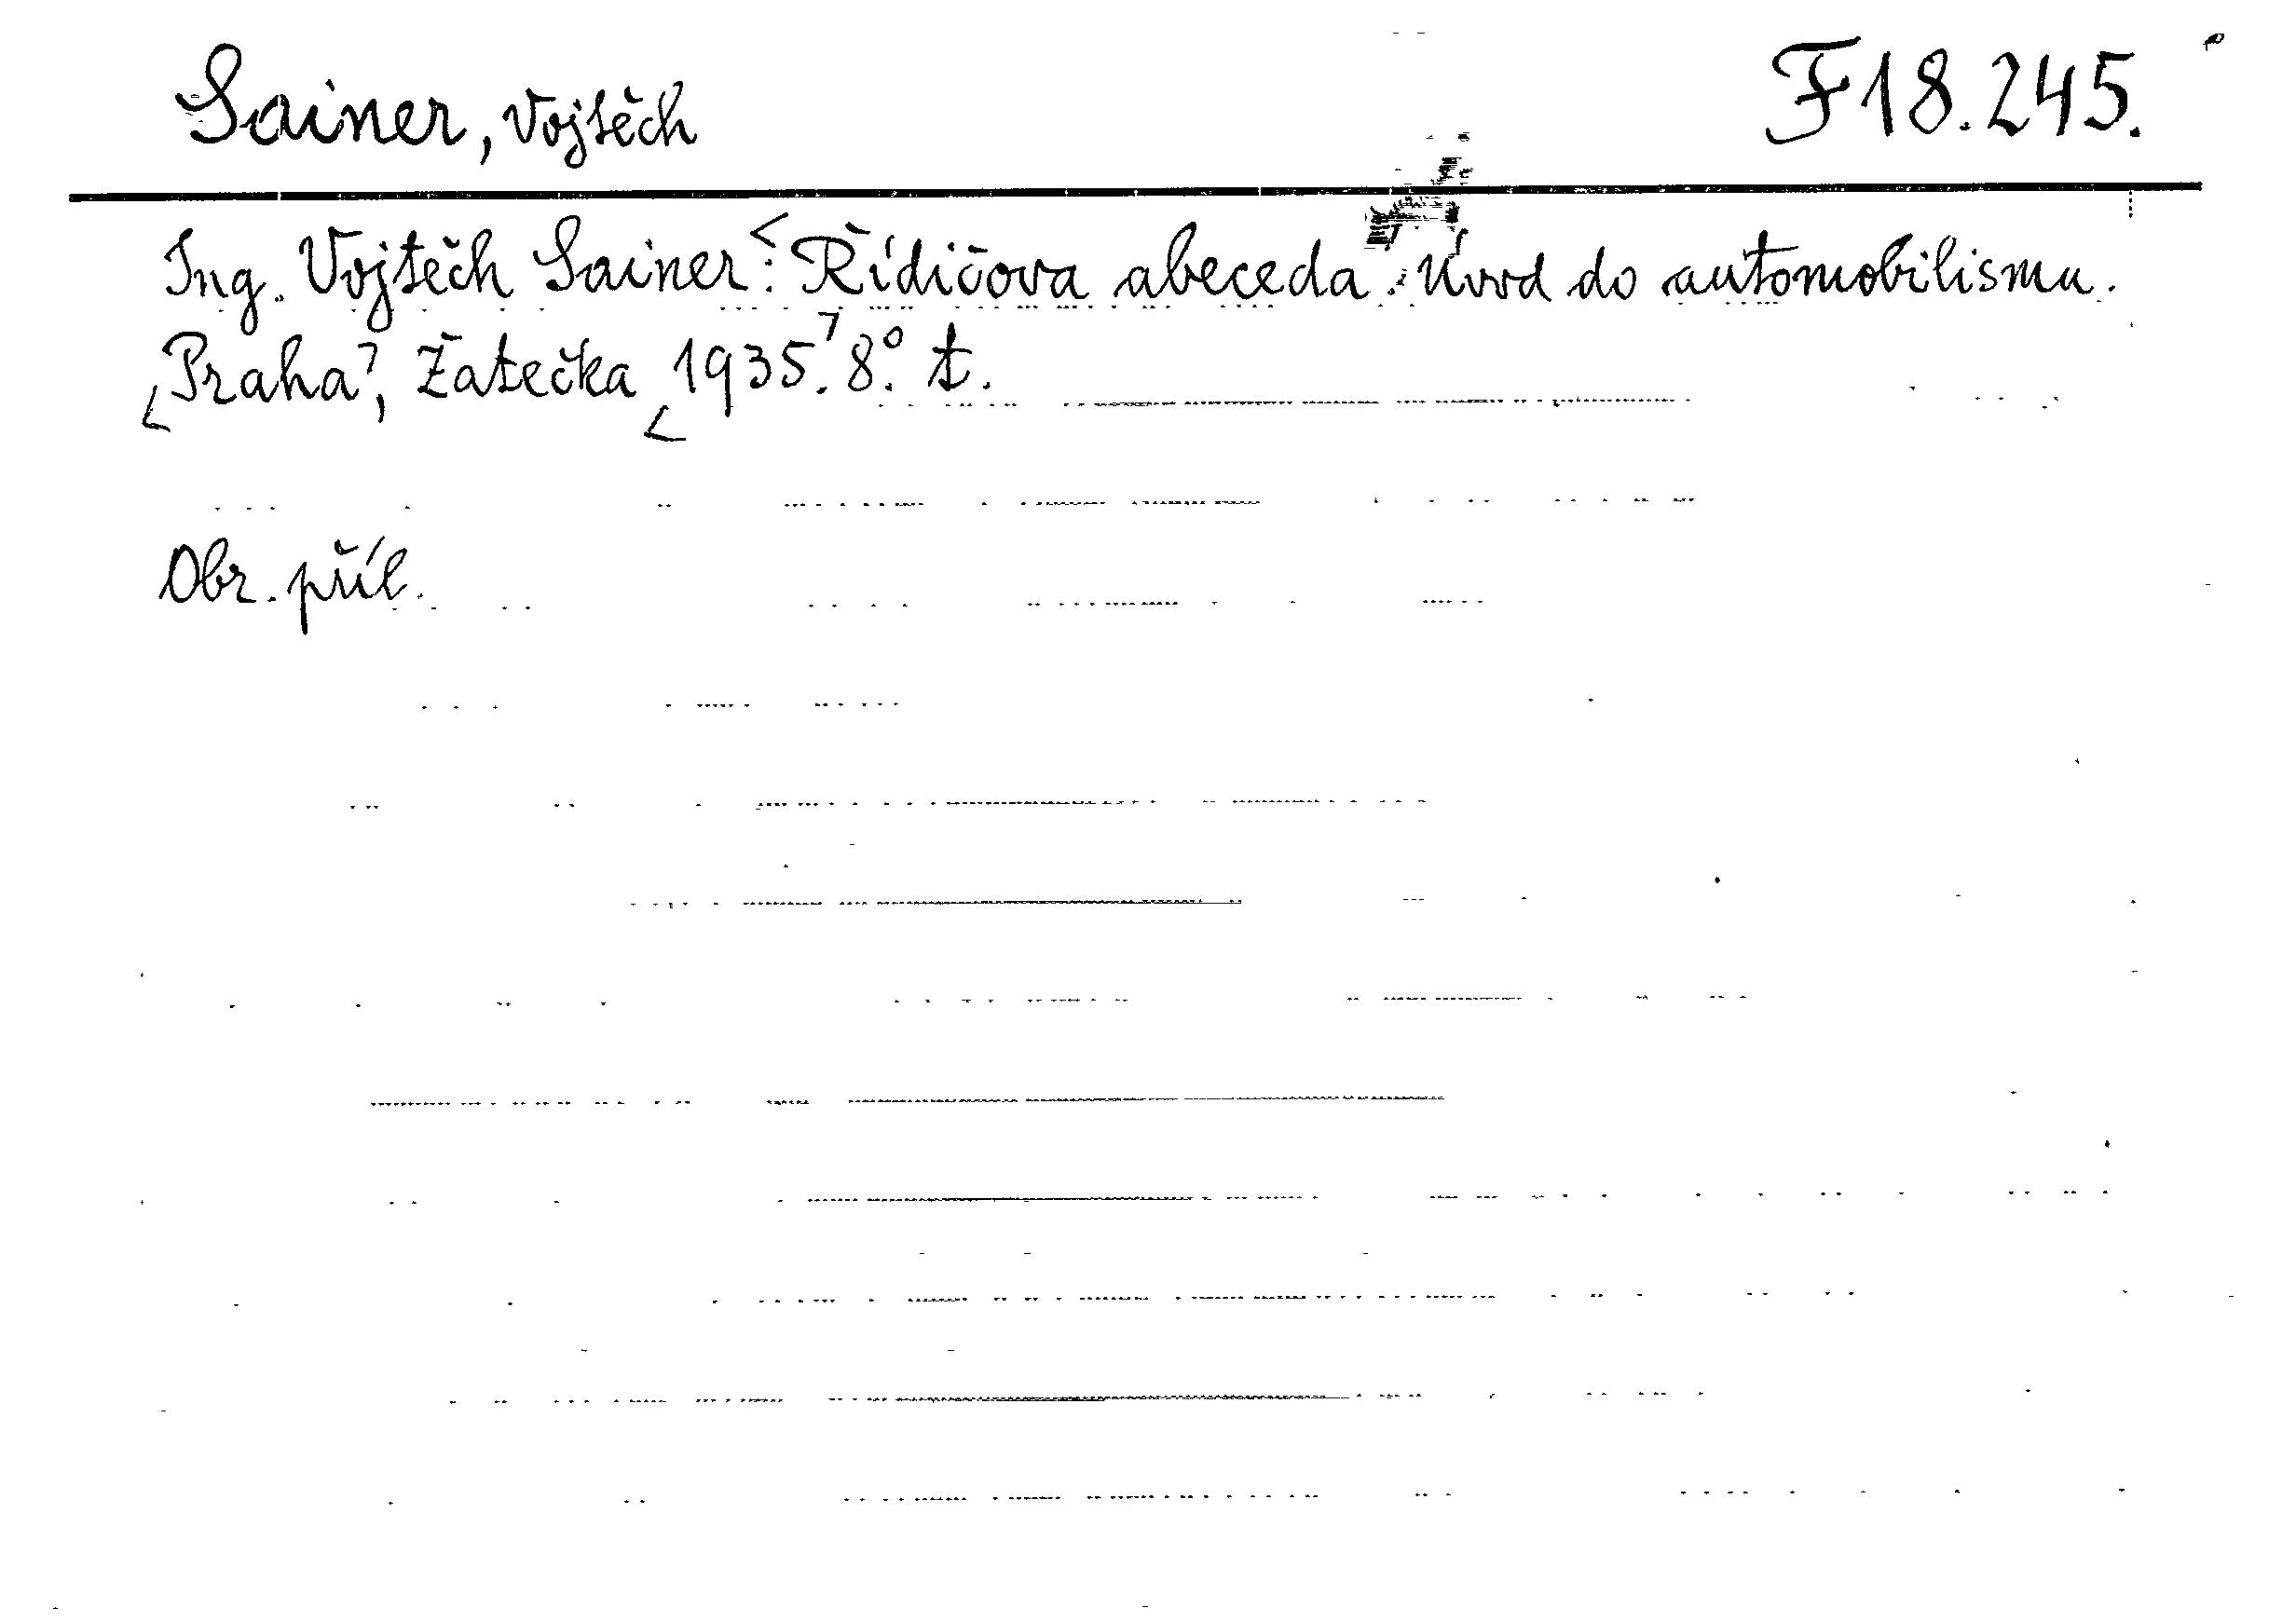 Sainer, Vojtěch F18.245.
Ing. Vojtěch Sainer: Řidičova abeceda. Úvod do automobilismu.
Praha, Žatečka 1935. 8°. t.
Obr. příl.